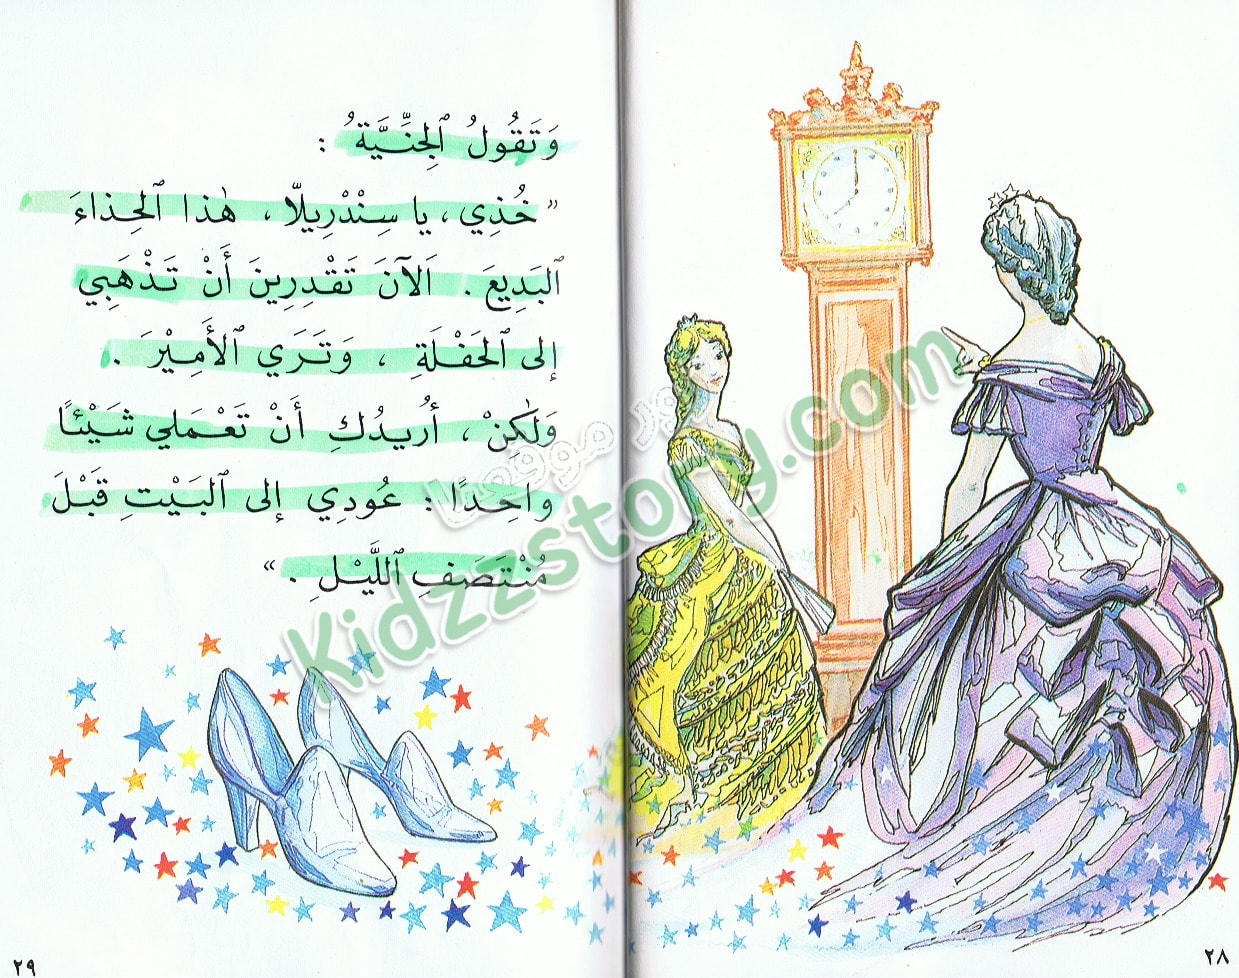 وَتَقُولُ ٱلْجِنِّيَّةُ :
” خُذِي ، يا سِنْدْرِيلّا ، هٰذا ٱلحِذاءَ
ٱلبَدِيعَ . اَلآنَ تَقْدِرِينَ أَنْ تَذْهَبِي
إلى ٱلحَفْلَةِ ، وَتَرَي ٱلأَمِيْرَ .
وَلٰكِنْ ، أُرِيدُكِ أَنْ تَعْمَلي شَيْئًا
واحِدًا : عُودِي إلى ٱلبَيْتِ قَبْلَ
مُنْتَصَفِ ٱللَّيْلِ . “
Kidzzstory.com
٢٨
٢٩